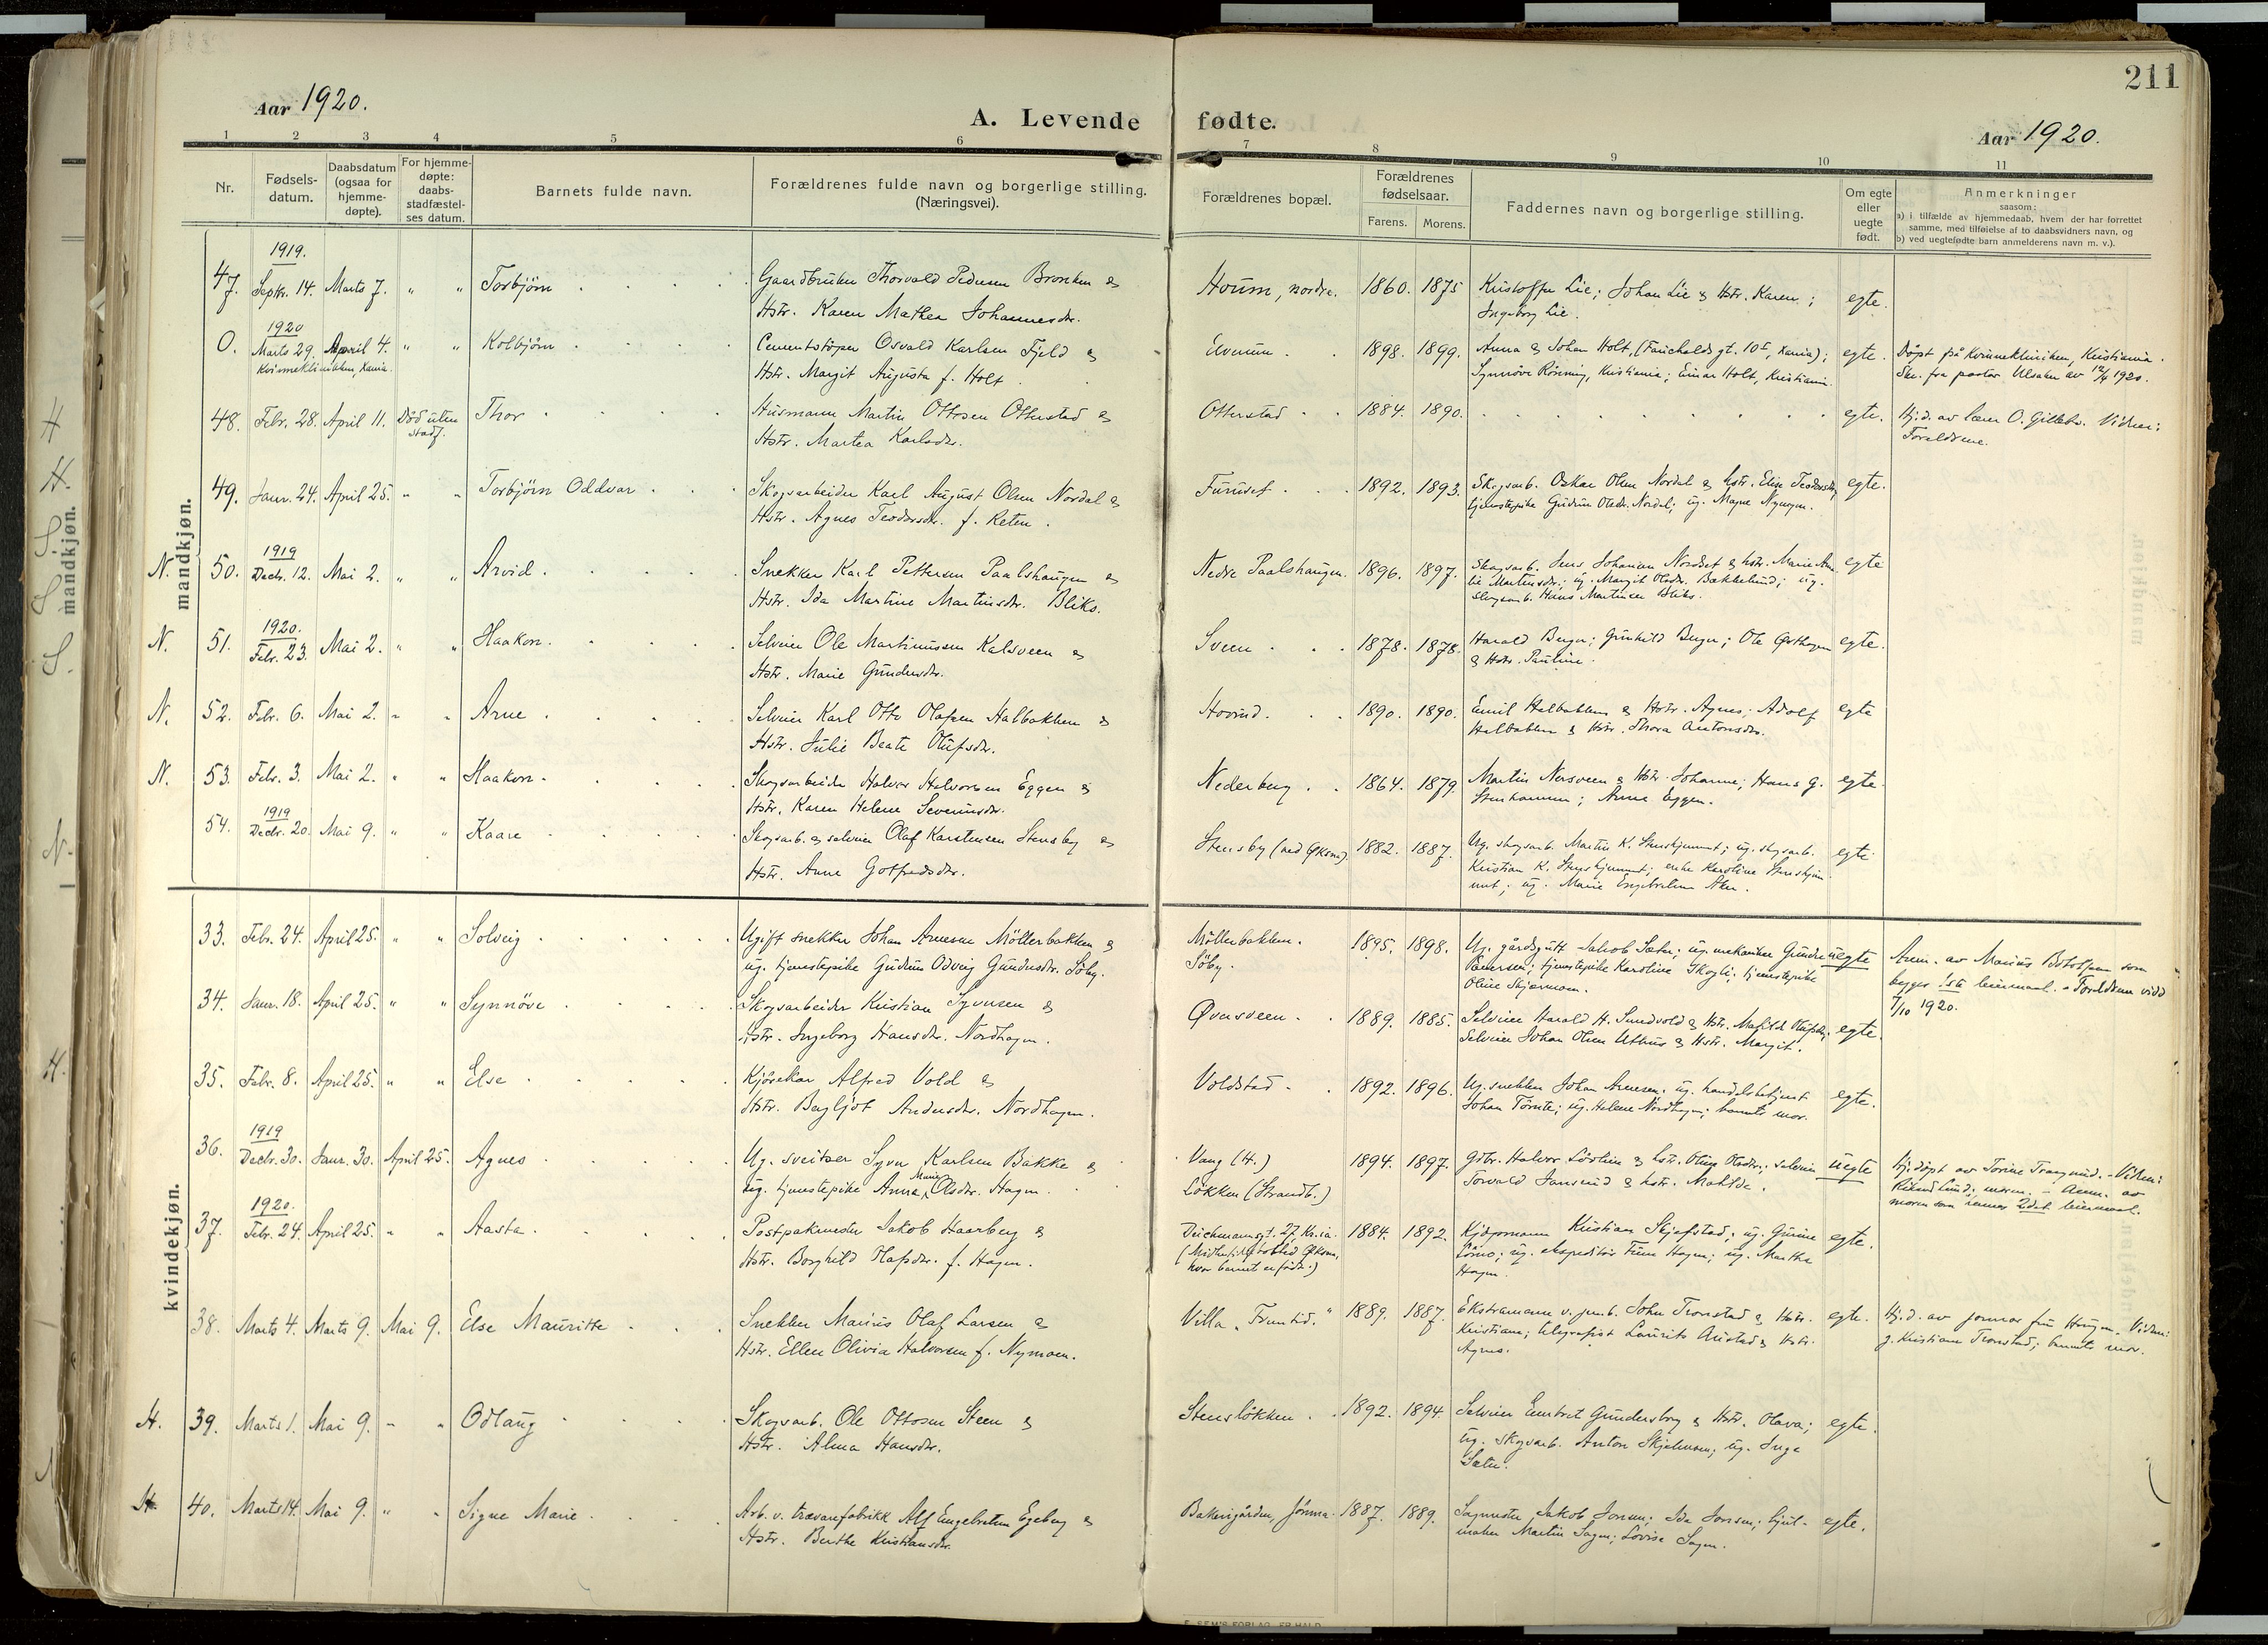 211
Aar 1920.
A. Levende fødte.
Aar 1920.
1 2 3 4 5 6 7 8 9 10 11
Nr.
Fødsels-
datum.
Daabsdatum
(ogsaa for
hjemme-
døpte).
For hjemme-
døpte:
daabs-
stadfæstel-
ses datum.
Barnets fulde navn.
Forældrenes fulde navn og borgerlige stilling.
(Næringsvei).
Forældrenes bopæl.
Forældrenes
fødselsaar.
Farens. Morens.
Faddernes navn og borgerlige stilling.
Om egte
eller
uegte
født.
Anmerkninger
saasom:
a) i tilfælde av hjemmedaab, hvem der har forrettet
samme, med tilføielse af to daabsvidners navn, og
b) ved uegtefødte barn anmelderens navn m. v.).
mandkjøn.
1919.
47. Septr. 14. Marts 7. " " Torbjörn Gaardbruker Thorvald Pedersen Bronken & Houm, nordre. 1860. 1875 Kristoffer Lie; Johan Lie & Hstr. Karen; egte.
Hstr. Karen Mathea Johannesdr. Ingeborg Lie.
1920
O. Marts 29. April 4. " " Kolbjörn Cementstöper Osvald Karlsen Fjeld & Evenum 1898. 1899. Anna & Johan Holt, (Faucholds gt. 10 I, Xania); egte. Döpt på Kvinneklinikken, Kristiania.
Kvinneklinikken, Xania. Hstr. Margit Augusta f. Holt. Synnöve Rönning, Kristiania; Einar Holt, Kristiania. Skr. fra pastor Ulsaker av 12/4 1920.
48. Febr. 28. April 11. Död uten Thor Husmann Martin Ottosen Otterstad & Otterstad 1884. 1890. egte. Hj.d. av lærer O. Gillebo. Vidner:
stadf. Hstr. Martea Karlsdr. Foreldrene.
49. Janr. 24. April 25. " " Torbjörn Oddvar Skogsarbeider Karl August Olsen Nordal & Furuset 1892. 1893. Skogsarb. Oskar Olsen Nordal & hstr. Elise Teodorsdr.; egte.
Hstr. Agnes Teodorsdr. f. Reten. tjenestepike Gudrun Olsdr. Nordal; ug. Magne
1919
N. 50. Decbr. 12. Mai 2. " " Arvid Snekker Karl Pettersen Paalshaugen & Nedre Paalshaugen. 1896. 1897. Skogsarb. Jens Johansen Nordset & hstr. Marie egte
Hstr. Ida Martine Martinsdr. Bliks. Martinsdr.; ug. Margit Olsdr. Bækkelund; ug.
skogsarb. Hans Martinsen Bliks.
1920.
N. 51. Febr. 23. Mai 2. " " Haakon Selveier Ole Martinussen Kalsveen & Sveen 1878. 1878. Harald Berger; Gunhild Berger; Ole Østhagen egte.
Hstr. Marie Gundersdr. & Hstr. Pauline.
N. 52. Febr. 6. Mai 2. " " Arne Selveier Karl Otto Olafsen Halbakken & Hovind 1890. 1890. Emil Halbakken & Hstr. Agnes; Adolf egte
Hstr. Julie Beate Olufsdr. Halbakken & Hstr. Thora Antonsdr.
N. 53. Febr. 3. Mai 2. " " Haakon Skogsarbeider Halvor Halvorsen Eggen & Nederberg 1864. 1879. Martin Nersveen & Hstr. Johanne; Hans G. egte.
Hstr. Karen Helene Severinsdr. Stenhammer; Anna Eggen.
1919
54. Decbr. 20. Mai 9. " " Kaare Skogsarb. & selveier Olaf Karstensen Stensby & Stensby (ved Øksna) 1882. 1887. Ug. skogsarb. Martin K. Stenskjemmet; ug. skogsarb. egte.
Hstr. Anne Golfredsdr. Kristian K. Stenskjemmet; enke Karoline Stenskjem-
met; ug. Marie Engebretsen Aker.
kvindekjøn.
33. Febr. 24. April 25. " " Solveig Ugift snekker Johan Arnesen Möllerbakken & Möllerbakken. 1895. 1898. Ug. gårdsgutt Jakob Sæter; ug. mekaniker Gunder uegte Anm. av Marius Botolfsen som
ug. tjenestepike Gudrun Odveig Gundersdr. Söby. Söby. tjenestepike Karoline Skogli; tjenestepike begges 1ste leiermaal. - Foreldrene viet
Oline Skjærmoen. 7/10 1920.
34. Janr. 18. April 25. " " Synnöve Skogsarbeider Kristian Syversen & Øversveen 1889. 1885. Selveier Harald H. Sundvold & Hstr. Matilde Olufsdr.; egte.
Hstr. Ingeborg Hansdr. Nordhagen. Selveier Johan Olsen Uthus & Hstr. Margit.
35. Febr. 8. April 25. " " Else Kjörekar Alfred Vold & Voldstad 1892. 1896. Ug. snekker Johan Arnesen; ug. handelsbetjent egte.
Hstr. Bergljot Andersdr. Nordhagen. Johan Törnte; ug. Helene Nordhagen; barnets mor.
1919
36. Decbr. 30. Janr. 30. April 25. Agnes Ug. sveitser Syver Karlsen Bakke & Vang (H.) 1894. 1897. Gdbr. Halvor Lövlien & hstr. Oline Olsdr.; selveier uegte Hj.döpt av Torine Trangrud. - Vidner:
ug. tjenestepike Anna Marie Olsdr. Hagen. Lökken (Strandb.) Torvald Jansrud & hstr. Matilde. moren. - Anm. av
moren som 2det leiermaal.
1920.
37. Febr. 24. April 25. " " Aasta Postpakmester Jakob Haarberg & Deichmansgt. 27, Kr.ia. 1884. 1892. Kjöpmann Kristian Skjefstad; ug. Gurine egte.
Hstr. Borghild Olafsdr. f. Hagen. (Midlertidig bosted Øksna, Lömo; ug. ekspeditör Hagen; ug. Martha
hvor barnet er född.) Hagen.
38. Marts 4. Marts 9. Mai 9. Else Mauritte Snekker Marius Olaf Larsen & Villa "Fremtid." 1889. 1887. Ekstramann v. jernb. John Tronstad & Hstr. egte. Hj.d. av jormor fru Haugen. Vidner:
Hstr. Ellen Olivia Halvorsen f. Nymoen. Kristiane; telegrafist Laurits Aristad & Hstr. g. Kristiane Tronstad; barnets mor.
Agnes.
H. 39. Marts 1. Mai 9. " " Odlaug Skogsarb. Ole Ottosen Steen & Stenslökken 1892. 1894. Selveier Embret Gundersborg & Hstr. Olava; egte.
Hstr. Alma Hansdr. ug. skogsarb. Anton Skjelmoen; ug. Inga
Sæter.
H. 40. Marts 14. Mai 9. " " Signe Marie Arb. v. trævarefabrikk Alf Engebretsen Egeberg & Bakerigården, Jömna. 1887. 1889. Sagmester Jakob Jonsen; Ida Jonsen; hjul- egte.
Hstr. Berthe Kristiansdr. maker Martin Sagen; Lovise Sagen.